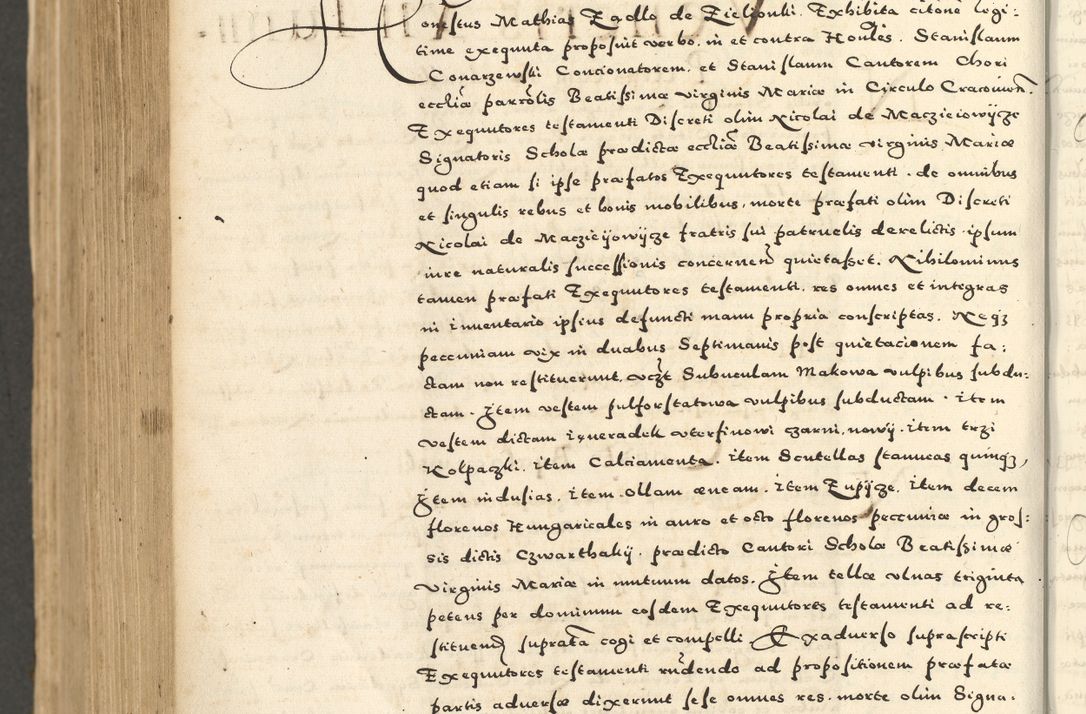 onestus Mathias Zgollo de Zielionki. Exhibita citone legi:
time exequuta proposuit verbo. in et contra Honles. Stanislaum
Conarzewski Concionatorem. et Stanislaum Cantorem Chori
eccliæ parrolis Beatissimæ virginis Mariæ in Circulo Cracouien.
Exequutores testamenti Discreti olim Nicolai de Maczieiowijcze
Signatoris Scholæ prædictæ eccliæ Beatissimæ virginis Mariæ
quod etiam si ipse præfatos Exequutores testamenti. de omnibus
et singulis rebus et bonis mobilibus, morte præfati olim Discreti
Nicolai de Maczieijowijcze fratris sui patruelis derelictis. ipsum
iure naturalis successionis concernen quietasset. Nihilominus
tamen præfati Exequutores testamenti. res omnes et integras
in inuentario ipsius defuncti manu propria conscriptas. Neqz
peccuniam vix in duabus Septimanis post quietacionem fa:
ctam non restituerunt. vczt Subuculam Makowa vulpibus subdu:
ctam. Jtem vestem pulforstatowa vulpibus subductam. item
vestem dictam ineradek vterfinowi czarni, nowij. item trzi
Kolpaczki. item Calciamenta. item Scutellas stanneas quinqz,
Jtem indusias. item. ollam æneam. item Zupijcze. item decem
florenos Hungaricales in auro et octo florenos peccuniæ in gros:
sis dictis Czwarthakij. prædicto Cantori Scholæ Beatissimæ
Virginis Mariæ in mutuum datos. Jtem tellæ vlnas triginta
petens per dominum eosdem Exequutores testamenti ad re:
stituend suprata cogi et compelli. Et exaduerso suprascripti
Exequutores testamenti rndendo ad propositionem præfatæ
partis aduersæ dixerunt sese omnes res. morte olim Signa: